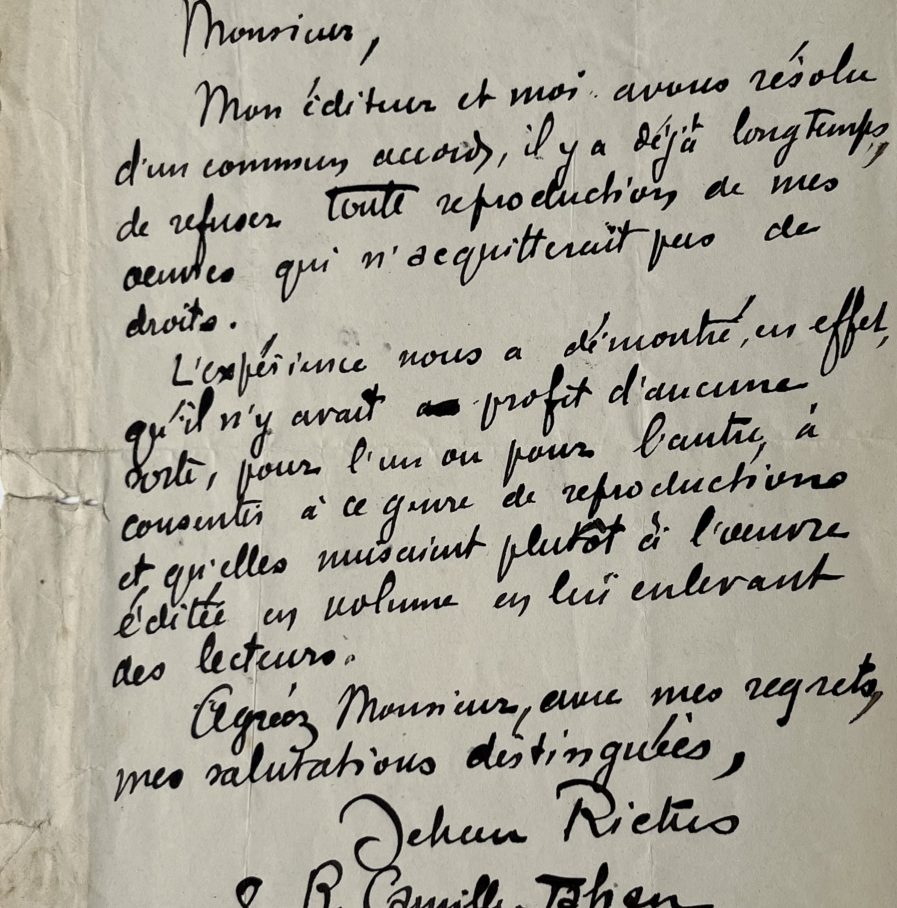 Monsieur,
Mon éditeur et moi avons résolu
d'un commun accord, il y a déjà longtemps,
de refuser toute reproduction de mes
oeuvres qui n'acquitterait pas de
droits.
L'expérience nous a démontré, en effet,
qu'il n'y avait profit d'aucune
sorte, pour l'un ou pour l'autre, à
consentir à ce genre de reproductions
et qu'elles nuisaient plutôt à l'œuvre
éditée en volume en lui enlevant
des lecteurs.
Agréez Monsieur, avec mes regrets,
mes salutations distinguées,
Jehan Rictus
8 R. Camille-Tahan